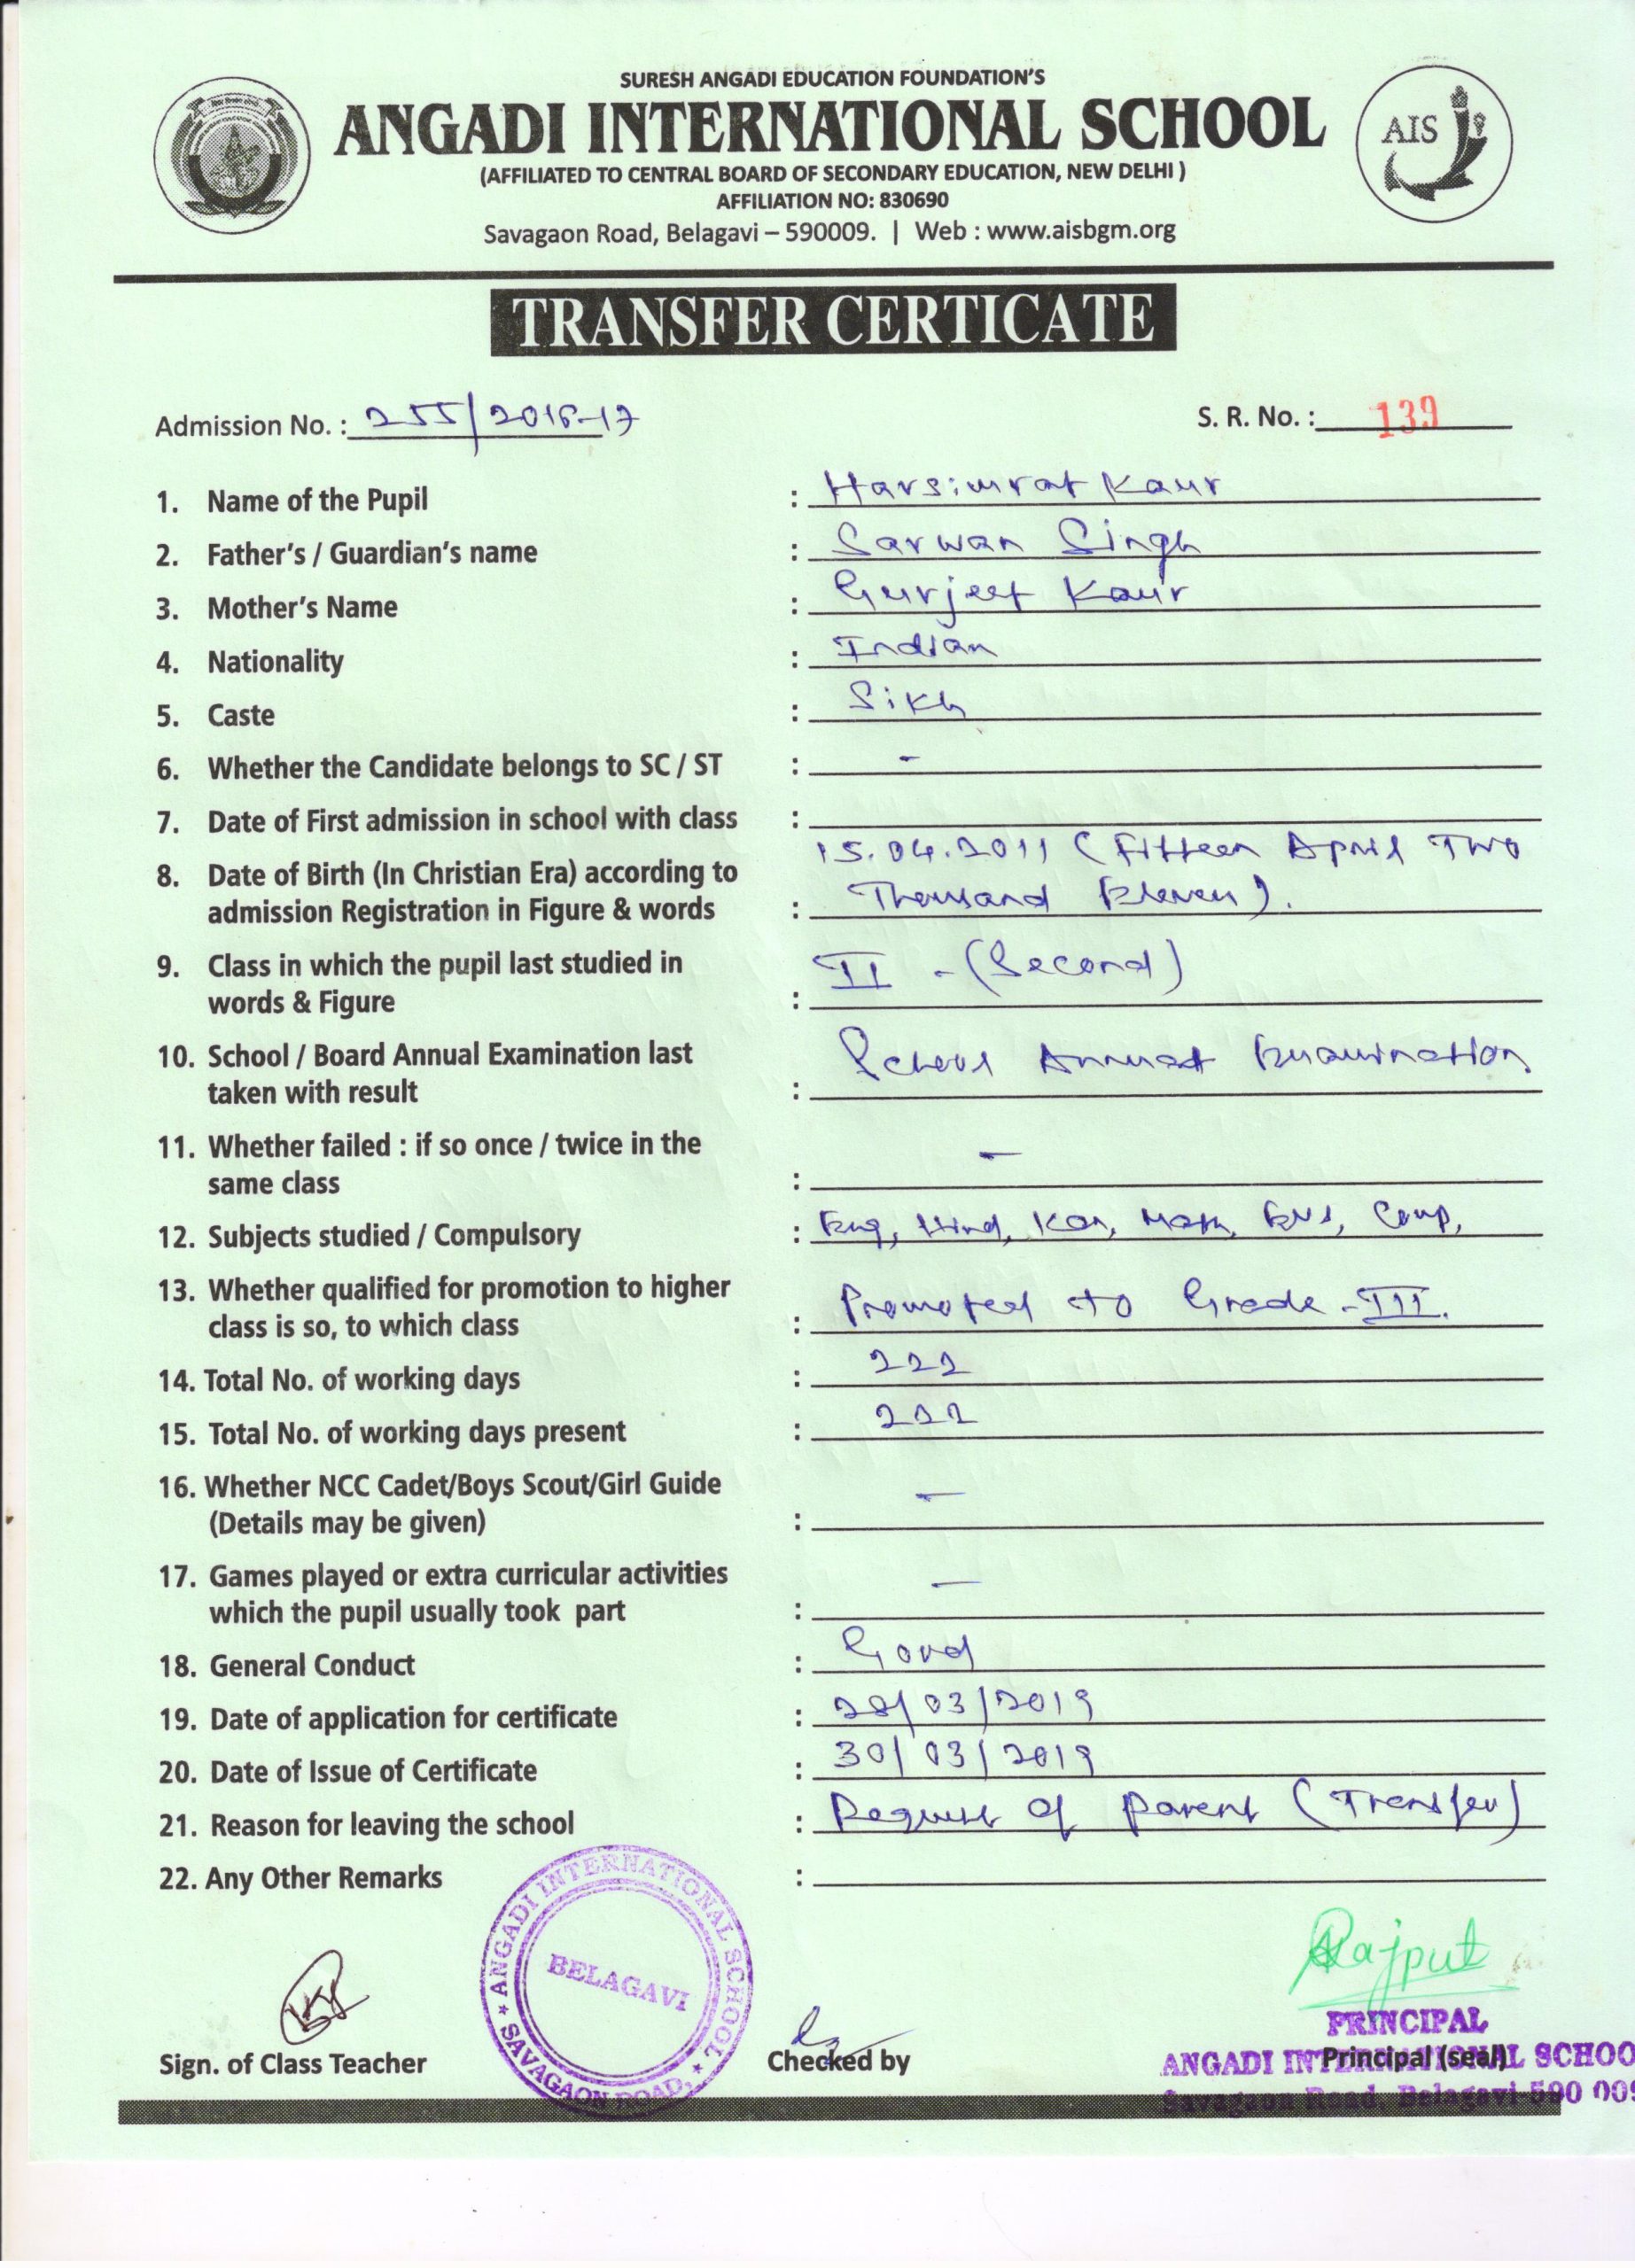 SURESH ANGADI EDUCATION FOUNDATION'S
ANGADI INTERNATIONAL SCHOOL
(AFFILIATED TO CENTRAL BOARD OF SECONDARY EDUCATION, NEW DELHI )
AFFILIATION NO: 830690
Savagaon Road, Belagavi – 590009. | Web : www.aisbgm.org
AIS
TRANSFER CERTICATE
Admission No. : 255/2016-17 S. R. No. : 139
1. Name of the Pupil : Harsimrat Kaur
2. Father's / Guardian's name : Sarwan Singh
3. Mother's Name : Gurjeet Kaur
4. Nationality : Indian
5. Caste : Sikh
6. Whether the Candidate belongs to SC / ST : -
7. Date of First admission in school with class :
8. Date of Birth (In Christian Era) according to 15.04.2011 (Fifteen April Two
admission Registration in Figure & words : Thousand Eleven).
9. Class in which the pupil last studied in II - (Second)
words & Figure :
10. School / Board Annual Examination last School Annual Examination
taken with result :
11. Whether failed : if so once / twice in the -
same class :
12. Subjects studied / Compulsory : Eng, Hind, Kan, Math, EVS, Comp,
13. Whether qualified for promotion to higher
class is so, to which class : Promoted to Grade - III.
14. Total No. of working days : 222
15. Total No. of working days present :
16. Whether NCC Cadet/Boys Scout/Girl Guide -
(Details may be given) :
17. Games played or extra curricular activities -
which the pupil usually took part :
18. General Conduct : Good
19. Date of application for certificate : 28/03/2019
20. Date of Issue of Certificate : 30/03/2019
21. Reason for leaving the school : Request of parent (Transfer)
22. Any Other Remarks :
ANGADI INTERNATIONAL SCHOOL
BELAGAVI
SAVAGAON ROAD,
Rajput
PRINCIPAL
Sign. of Class Teacher Checked by Principal (seal)
ANGADI INTERNATIONAL SCHOO
Savagaon Road, Belagavi-590 009